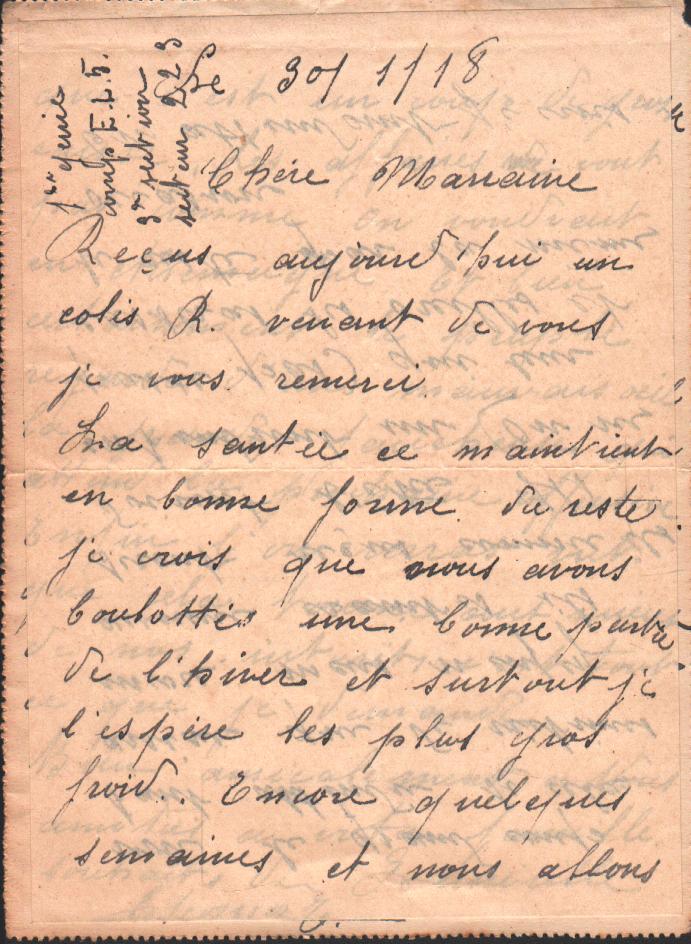 1er génie
comp E.L.5.
3e section
secteur 223
Le 30/1/18
Chère Marraine
Reçus aujourd'hui un
colis R. venant de vous
je vous remerci
La santée ce maintient
en bonne forme. du reste
je crois que nous avons
boulottés une bonne partie
de l'hiver et surtout je
l'espère les plus gros
froid.. Encore quelques
semaines et nous allons